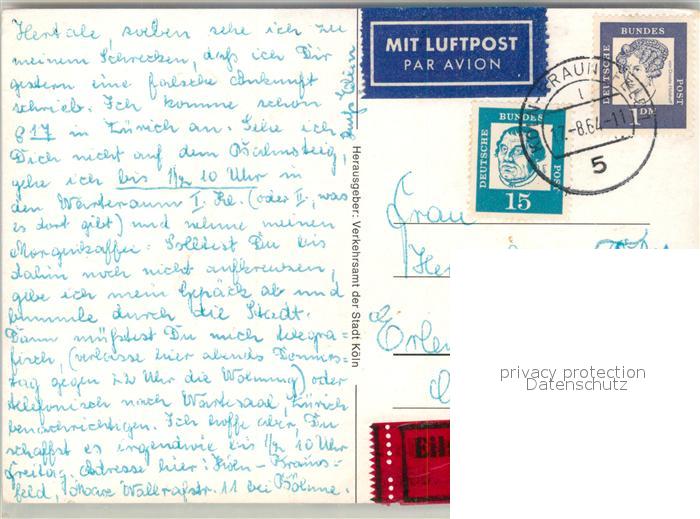 Hertale, soeben sehe ich zu
meinem Schrecken, daß ich Dir
gestern eine falsche Ankunft
schrieb. Ich komme schon
8 17 in Zürich an. Sehe ich
Dich nicht auf dem Bahnsteig,
gehe ich bis 1/2 10 Uhr in
den Warteraum I. Kl. (oder II., was
es dort gibt) und nehme meinen
Morgenkaffee. Solltest Du bis
dahin noch nicht aufkreuzen,
gebe ich mein Gepäck ab und
bummle durch die Stadt.
Dann müßtest Du mich telegra=
fisch, (verlasse hier abends Donners=
tag gegen 22 Uhr die Wohnung) oder
telefonisch nach Wartesaal Zürich
benachrichtigen. Ich hoffe aber Du
schaffst es irgendwie bis 1/2 10 Uhr
Freitag. Adresse hier: Köln-Brauns=
feld, Max Wallrafstr. 11 bei Böhme.
Herausgeber: Verkehrsamt der Stadt Köln
MIT LUFTPOST
PAR AVION
DEUTSCHE BUNDES POST
15
DEUTSCHE BUNDES POST
1 DM
-8.64-11
5
Frau
Her
Erlen
Eil
privacy protection
Datenschutz